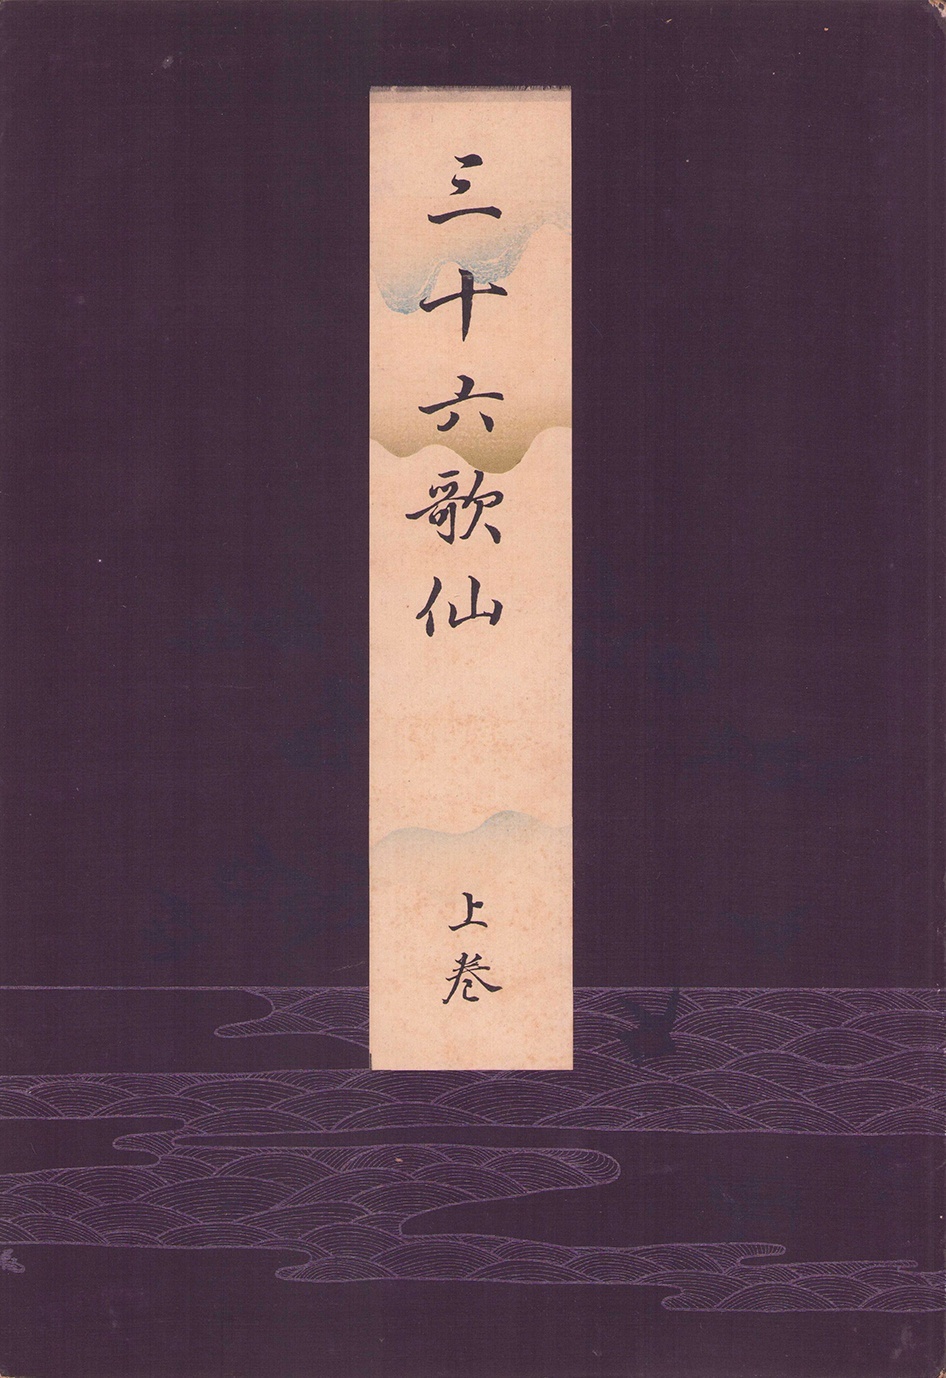 三十六歌仙
上巻